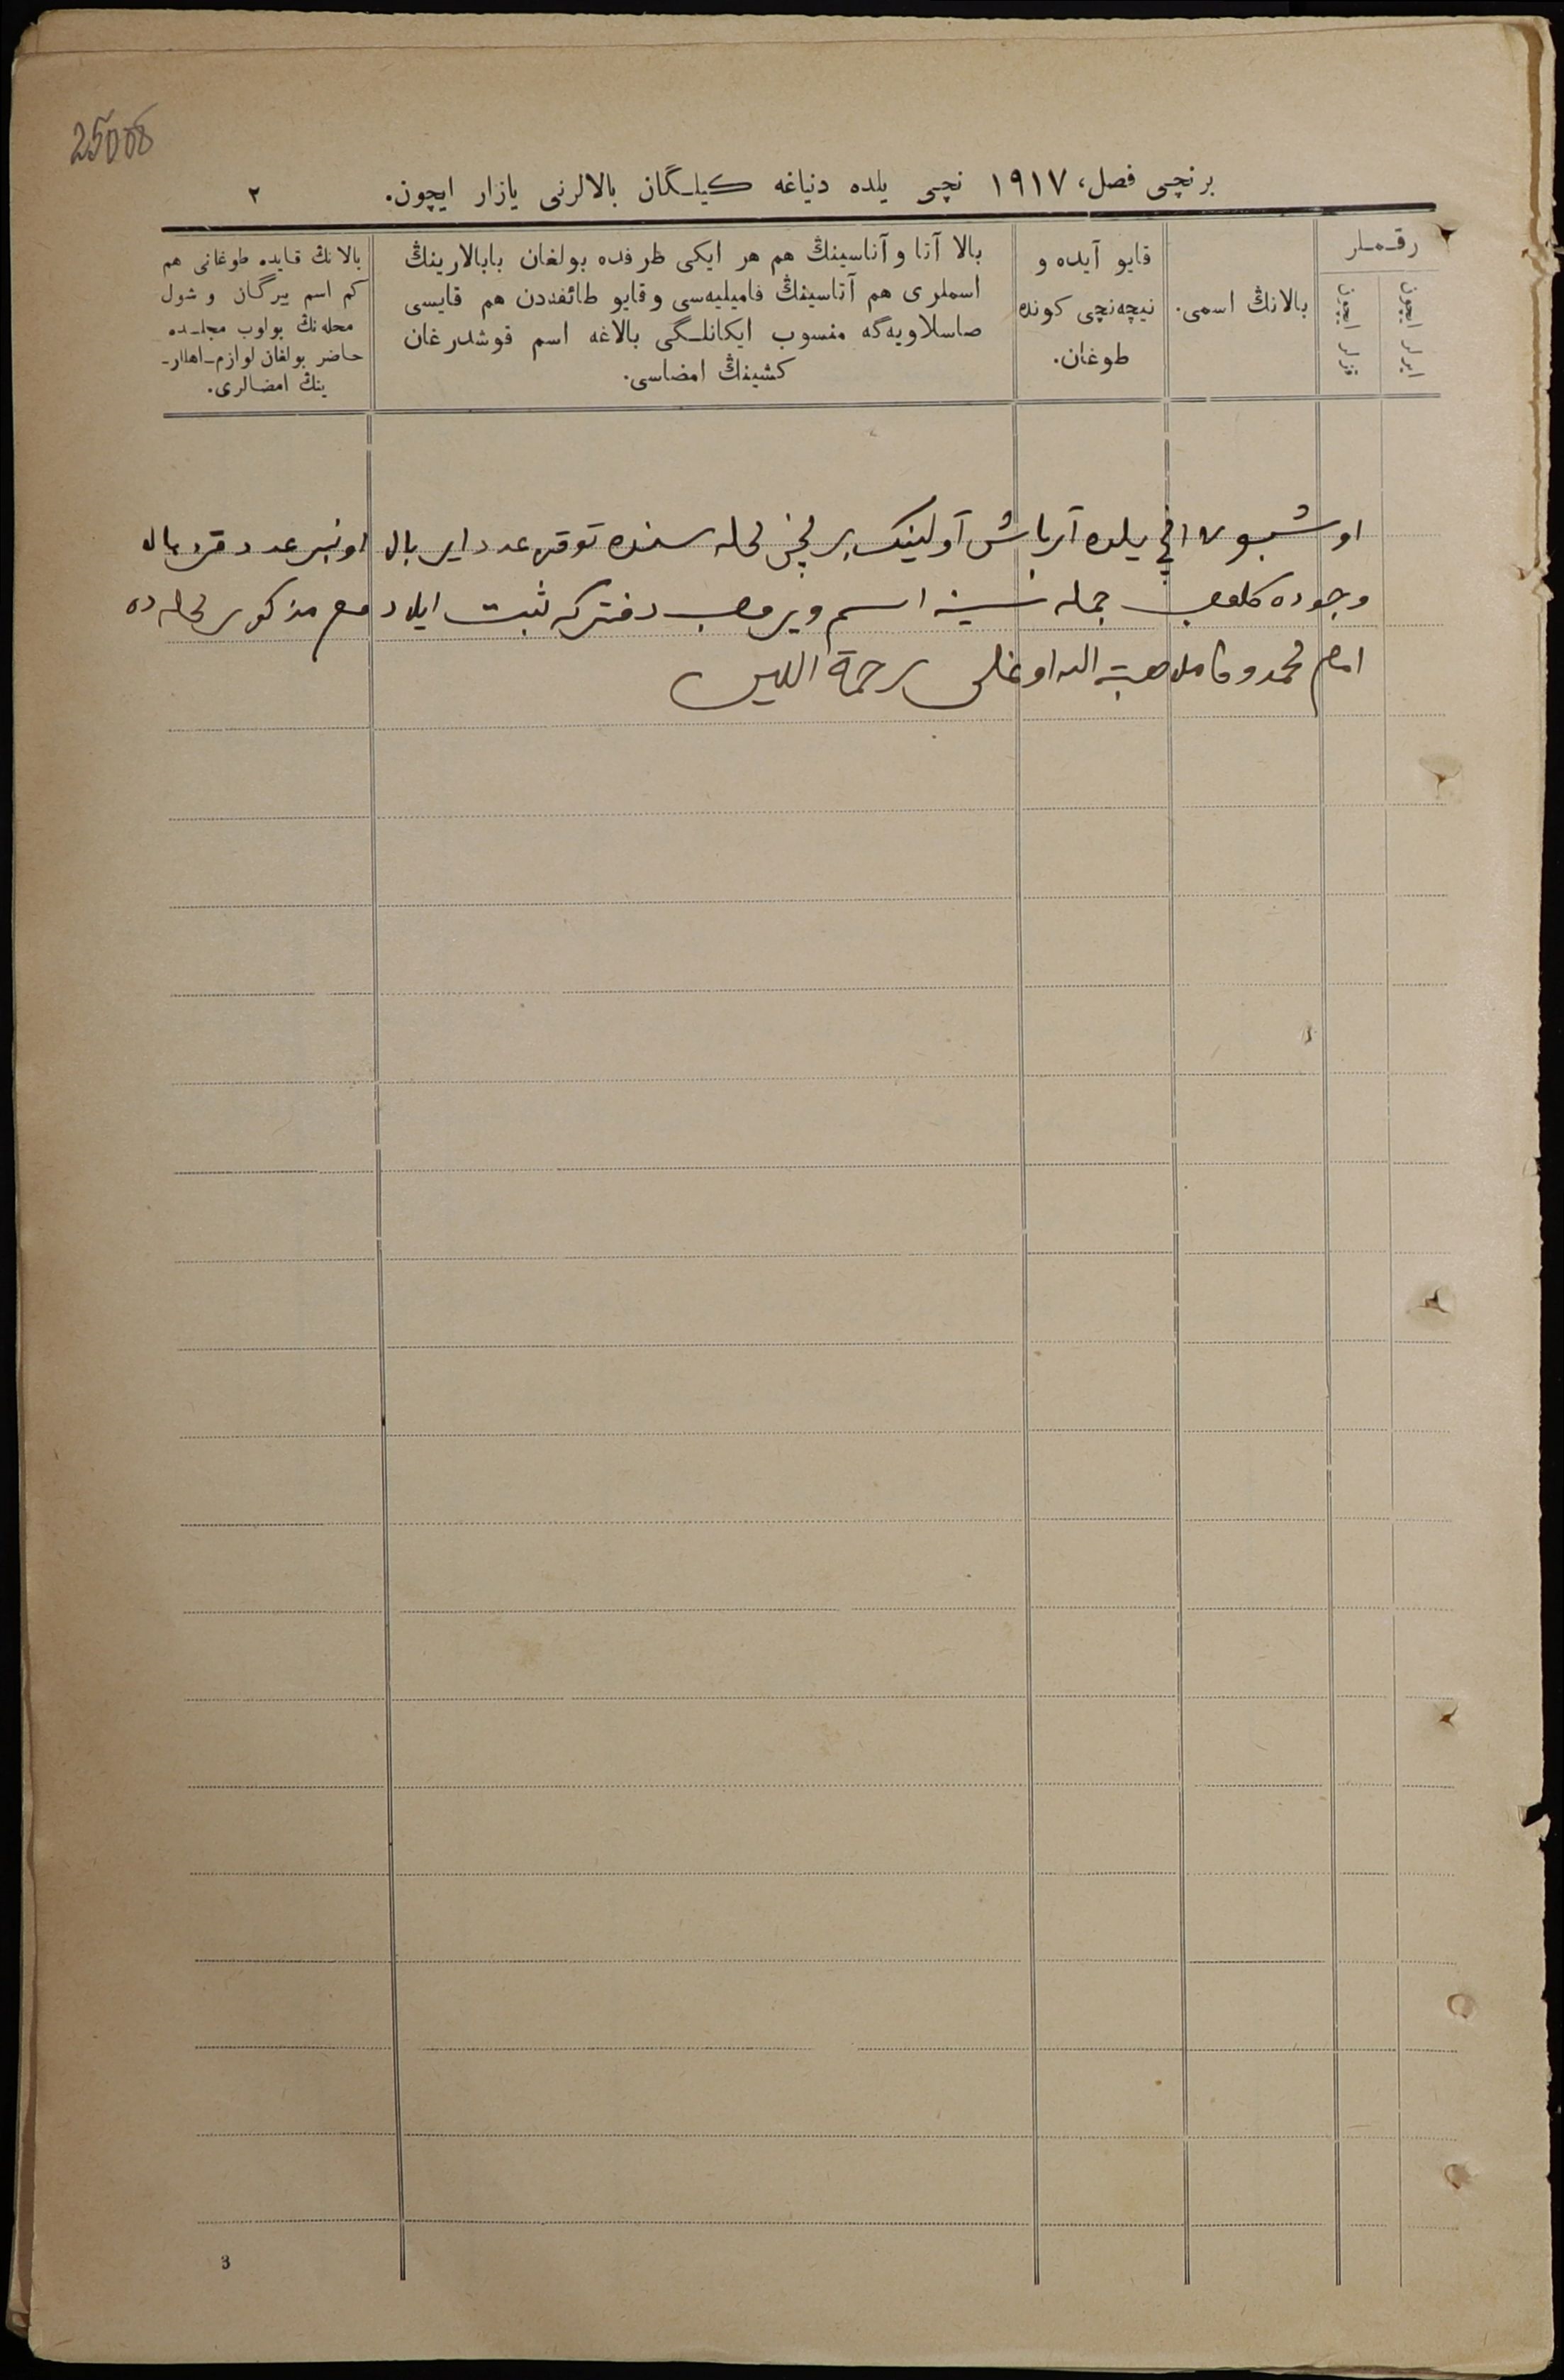 25008
برنچی فصل، ١٩١٧ نچی یلده دنیاغه کیلـگان بالالرنی یازار ایچون.
٢
رقـمـلر
ایرلر ایچون
قزلر ایچون
بالانڭ اسمی.
قایو آیده و
نیچه‌نچی کونده
طوغان.
بالا آتا و آناسینڭ هم هر ایکی طرفده بولغان بابالارینڭ
اسملری هم آتاسینڭ فامیلیه‌سی و قایو طائفه‌دن هم قایسی
صاسلاویه‌گه منسوب ایکانلـگی بالاغه اسم قوشدرغان
کشینڭ امضاسی.
بالانڭ قـایده طوغانی هم
کم اسم بیرگـان و شول
محله‌نڭ بولوب مجلـده
حاضر بولغان لوازم-اهللر-
ینڭ امضـالری.
اوشبو ١٧ نچی یلده آرباش آولینک برنچی محله سنده توقز عدد ایر بالا اونبر عدد قز بالا
وجوده کلوب جمله سینه اسم ویروب دفترکه ثبت ایلادم مذکور محله ده
امام محمد وفا هبة الله اوغلی رحمة اللین
3